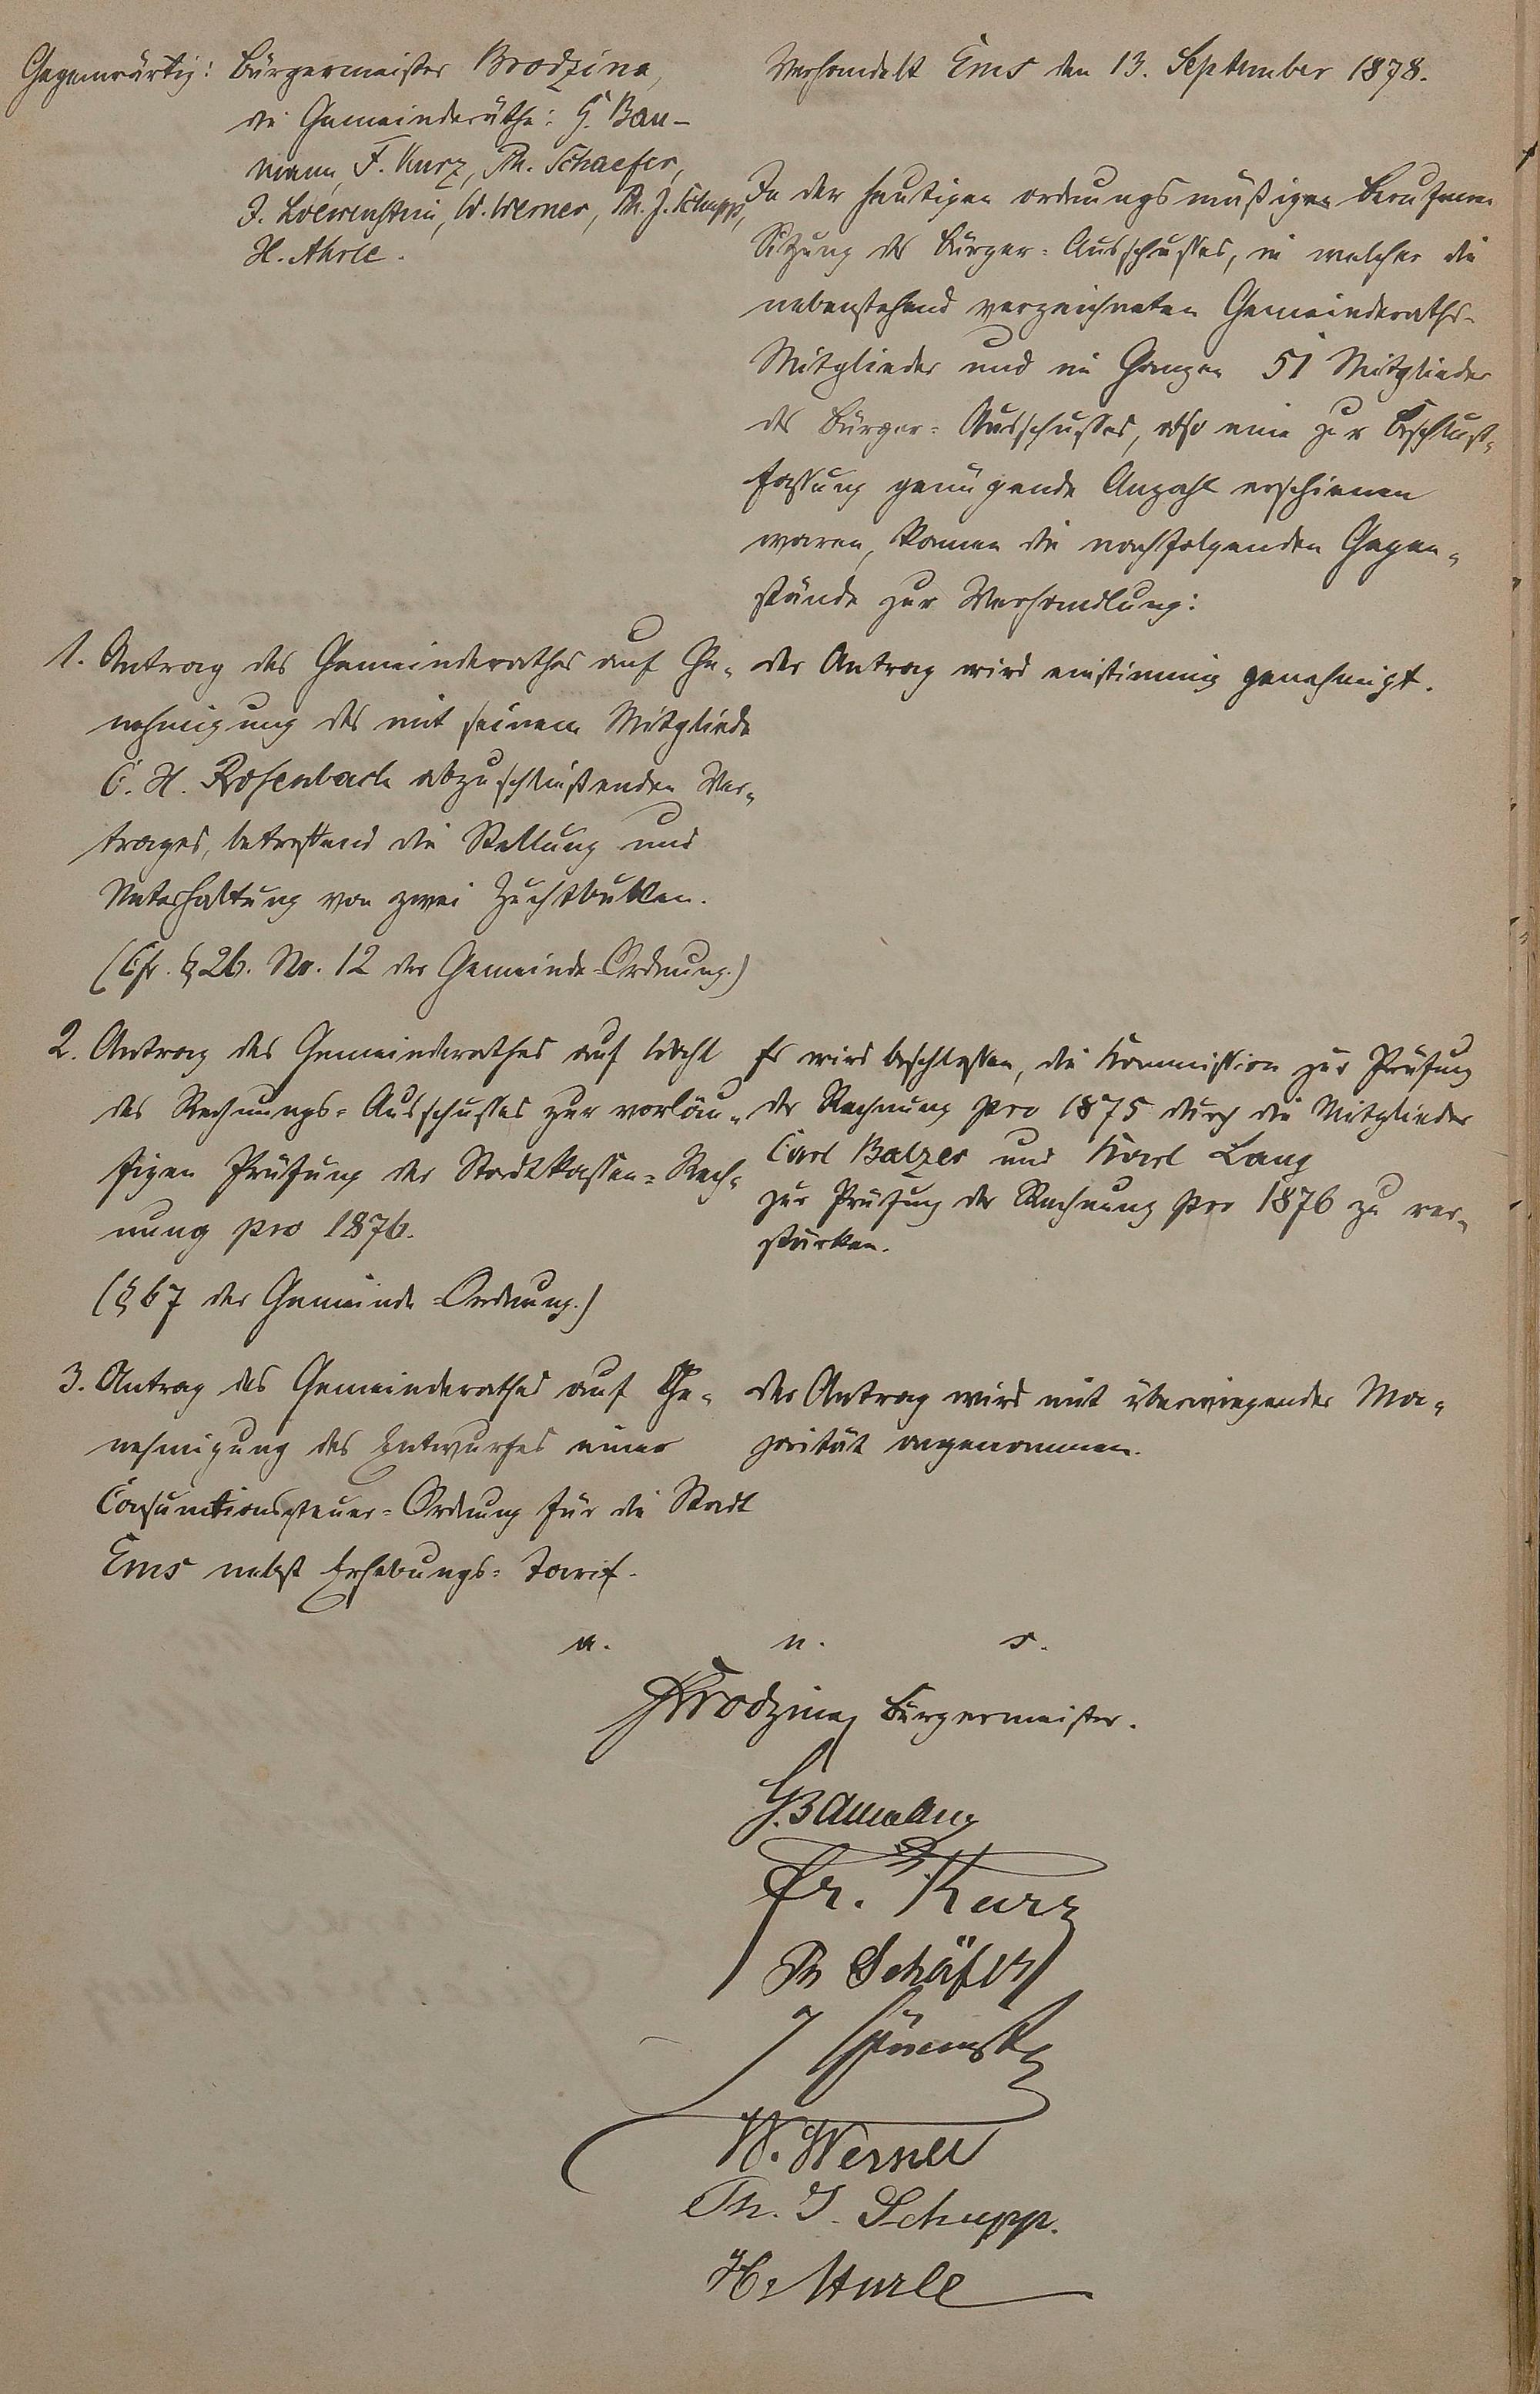 Gegenwärtig: Bürgermeister Brodzina,
die Gemeinderäthe: G. Bau-
mann, F. Kurz, Ph. Schaefer,
J. Loewenstein, W. Werner, Ph. J. Schupp,
H. Ahrle.
Verhandelt Ems den 13. September 1878.
In der heutigen ordnungsmäßigen berufenen
Sitzung des Bürger-Ausschusses, in welcher die
nebenstehend verzeichneten Gemeinderaths-
Mitglieder und im Ganzen 51 Mitglieder
des Bürger-Ausschusses, also eine zur Beschluß-
fassung genügende Anzahl erschienen
waren, kamen die nachfolgenden Gegen-
stände zur Verhandlung:
1. Antrag des Gemeinderathes auf Ge-
nehmigung des mit seinem Mitgliede
C. H. Rosenbach abzuschließenden Ver-
trages, betreffend die Stellung und
Unterhaltung von zwei Zuchtbullen.
(Cfr. § 26. No. 12 der Gemeinde-Ordnung.)
der Antrag wird einstimmig genehmigt.
2. Antrag des Gemeinderathes auf Wahl
des Rechnungs-Ausschusses zur vorläu-
figen Prüfung der Stadtkassen-Rech-
nung pro 1876.
(§ 67 der Gemeinde-Ordnung.)
Es wird beschlossen, die Kommission zur Prüfung
der Rechnung pro 1875 durch die Mitglieder
Carl Balzer und Karl Lang
zur Prüfung der Rechnung pro 1876 zu ver-
stärken.
3. Antrag des Gemeinderathes auf Ge-
nehmigung des Entwurfes einer
Consumtionssteuer-Ordnung für die Stadt
Ems nebst Erhebungs-Tarif.
der Antrag wird mit überwiegender Ma-
jorität angenommen.
a. u. s.
Brodzina Bürgermeister.
G. Baumann
Fr. Kurz
Ph Schäfer
W. Werner
Ph. J. Schupp.
H. Ahrle